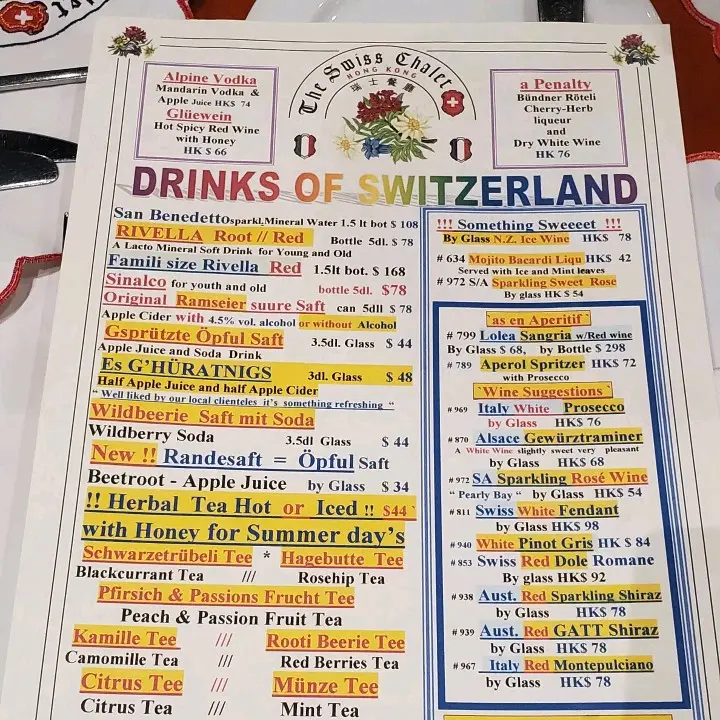 The Swiss Chalet
HONG KONG
瑞士餐廳
Alpine Vodka
Mandarin Vodka &
Apple Juice HK$ 74
Glüewein
Hot Spicy Red Wine
with Honey
HK $ 66
a Penalty
Bündner Röteli
Cherry-Herb
liqueur
and
Dry White Wine
HK 76
DRINKS OF SWITZERLAND
San Benedetto sparkl,Mineral Water 1.5 lt bot $ 108
RIVELLA Root // Red Bottle 5dl. $ 78
A Lacto Mineral Soft Drink for Young and Old
Famili size Rivella Red 1.5lt bot. $ 168
Sinalco for youth and old bottle 5dl. $78
Original Ramseier suure Saft can 5dll $ 78
Apple Cider with 4.5% vol. alcohol or without Alcohol
Gsprützte Öpful Saft 3.5dl. Glass $ 44
Apple Juice and Soda Drink
Es G'HÜRATNIGS 3dl. Glass $ 48
Half Apple Juice and half Apple Cider
“ Well liked by our local clienteles it´s something refreshing “
Wildbeerie Saft mit Soda
Wildberry Soda 3.5dl Glass $ 44
New !! Randesaft = Öpful Saft
Beetroot - Apple Juice by Glass $ 34
!! Herbal Tea Hot or Iced !! $44 `
with Honey for Summer day´s
Schwarzetrübeli Tee * Hagebutte Tee
Blackcurrant Tea /// Rosehip Tea
Pfirsich & Passions Frucht Tee
Peach & Passion Fruit Tea
Kamille Tee /// Rooti Beerie Tee
Camomille Tea /// Red Berries Tea
Citrus Tee /// Münze Tee
Citrus Tea /// Mint Tea
!!! Something Sweeeet !!!
By Glass N.Z. Ice Wine HK$ 78
# 634 Mojito Bacardi Liqu HK$ 42
Served with Ice and Mint leaves
# 972 S/A Sparkling Sweet Rose
By glass HK $ 54
`as en Aperitif`
# 799 Lolea Sangria w/Red wine
By Glass $ 68, by Bottle $ 298
# 789 Aperol Spritzer HK$ 72
with Prosecco
`Wine Suggestions`
# 969 Italy White Prosecco
by Glass HK$ 76
# 870 Alsace Gewürztraminer
A White Wine slightly sweet very pleasant
by Glass HK$ 68
# 972 SA Sparkling Rosé Wine
“ Pearly Bay “ by Glass HK$ 54
# 811 Swiss White Fendant
by Glass HK$ 98
# 940 White Pinot Gris HK $ 84
# 853 Swiss Red Dole Romane
By glass HK$ 92
# 938 Aust. Red Sparkling Shiraz
by Glass HK$ 78
# 939 Aust. Red GATT Shiraz
by Glass HK$ 78
# 967 Italy Red Montepulciano
by Glass HK$ 78